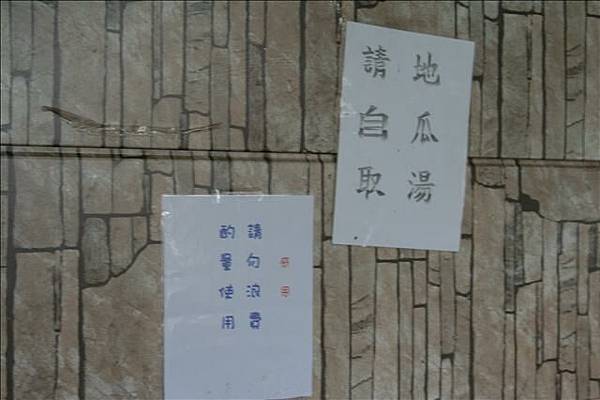 地瓜湯
請自取
感恩
請勿浪費
酌量使用